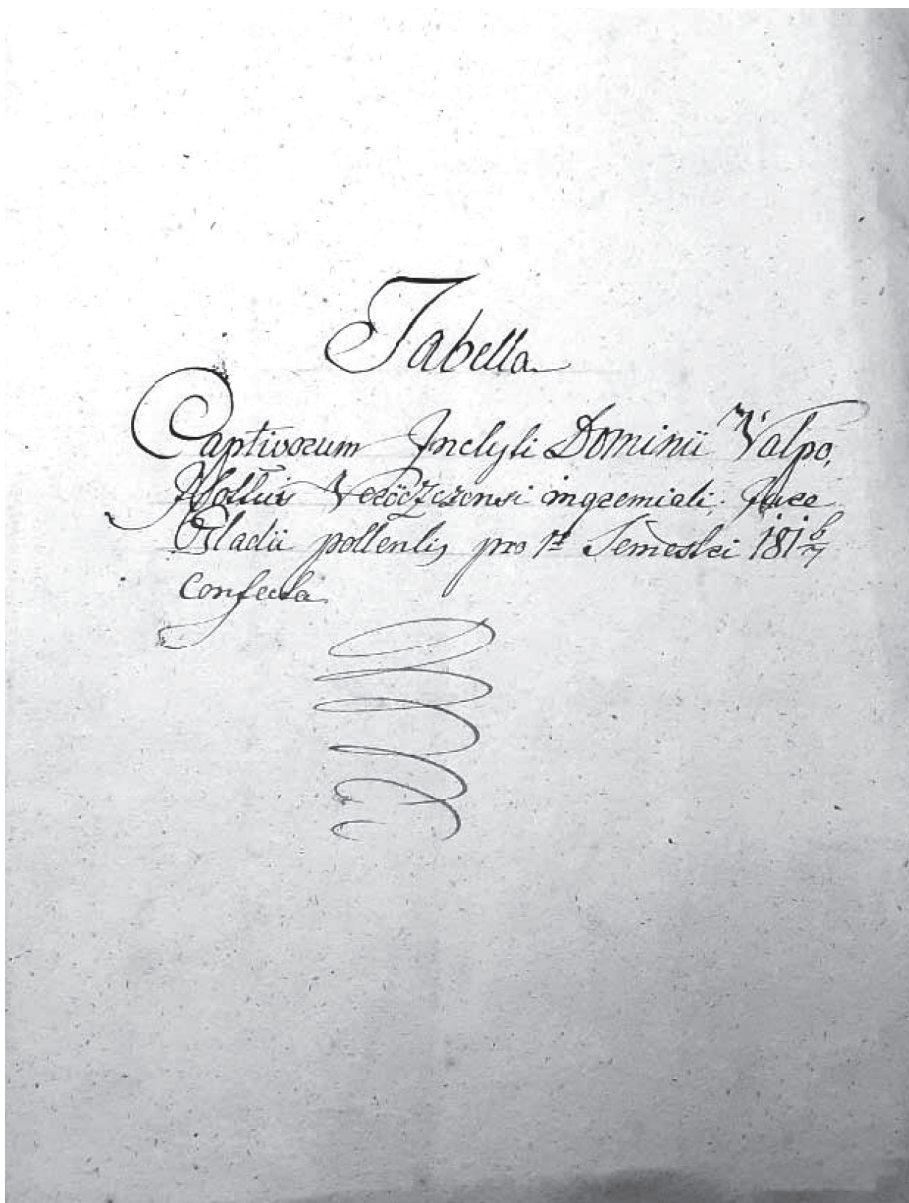 Tabella
Captivorum Inclyti Dominii Valpo,
Veröczensi ingremiati, Jure
Gladii pollentis pro 1º Semestri 181 6/7
Confecta